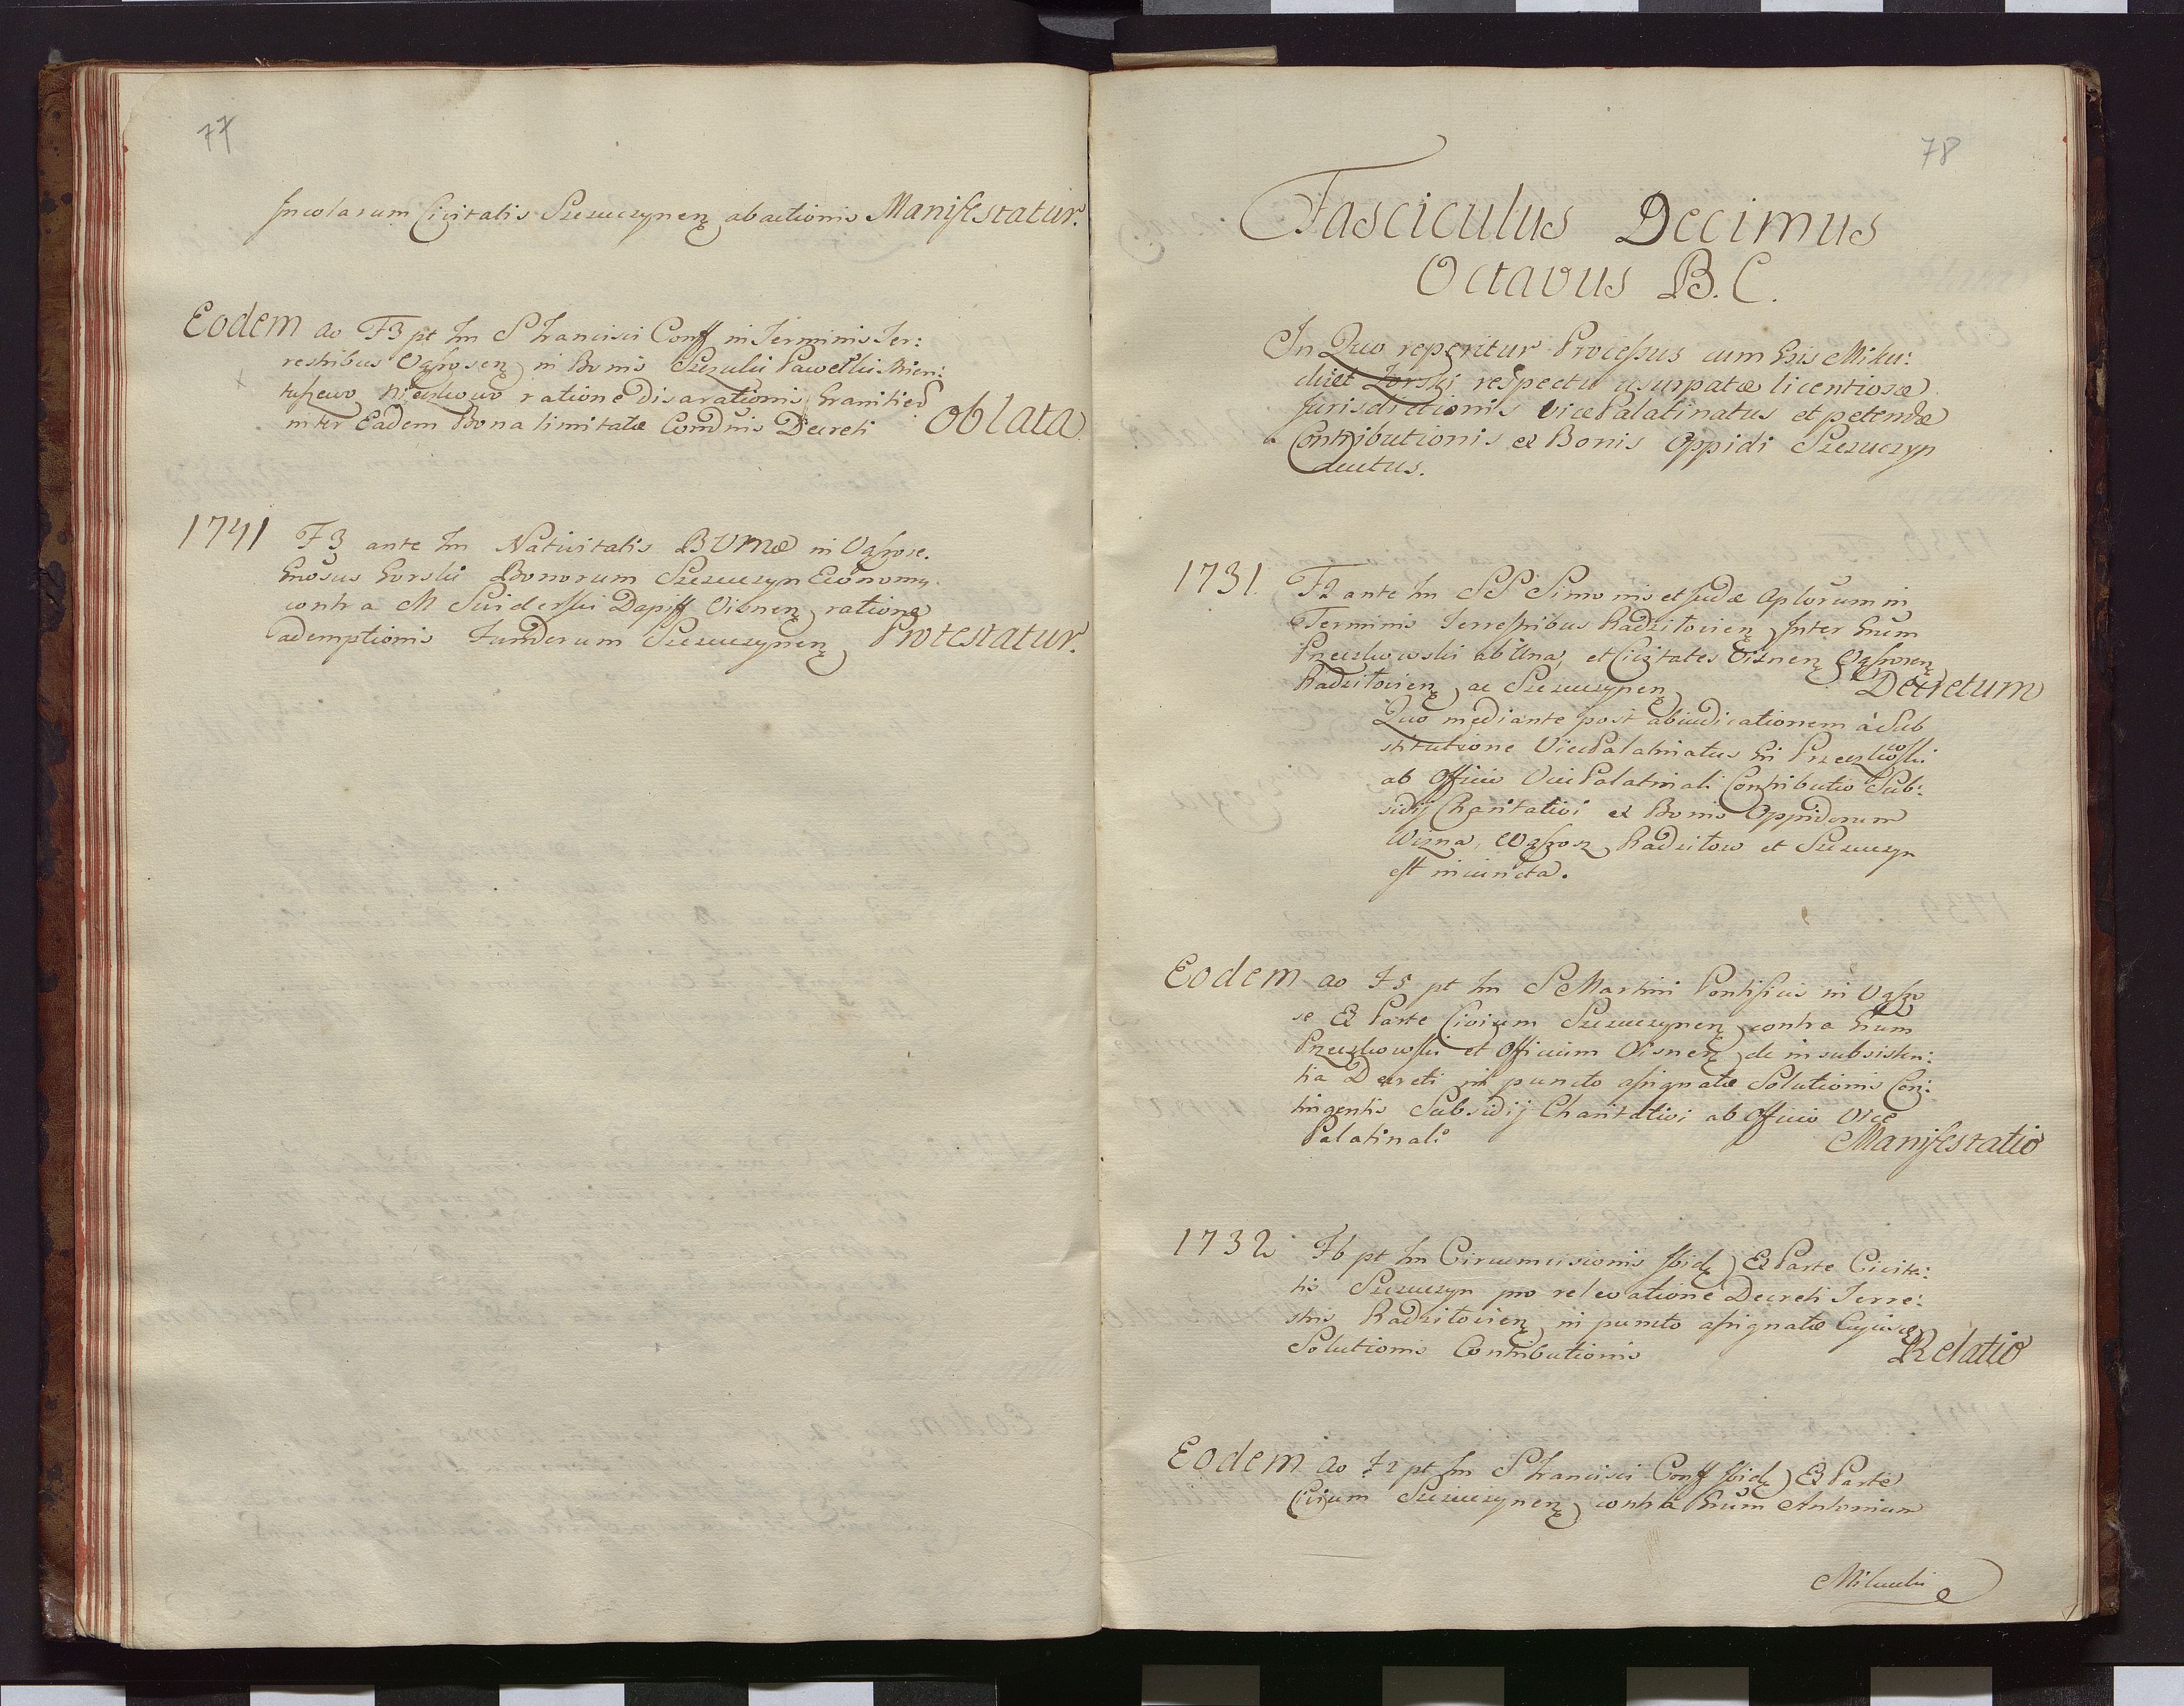 77
Incolarum Civitatis Szczuczynen abactionis Manifestatur.
Eodem ao F3 pt fm S Francisci Conff in Terminis Ter:
restribus Wąsosen in Bonis Szczulki Pawełki Mien:
ratione disarationis Granities
inter Eadem Bona limitatæ Comdnis Decreti Oblata
1741 F3 ante fm Nativitatis BVMæ in Wąsosc.
Gnosus Gorski Bonorum Szczuczyn Economg.
contra M Swiderski Dapiff Visnen ratione
ademptionis Funderum Szczuczynen Protestatur.
78
Fasciculus Decimus
Octavus B. C.
In Quo reperitur Processus cum Gsis Miku:
cki et Gorski respectu usurpatæ licentiosæ
Jurisdictionis vicePalatinatus et petendæ
Contributionis ex Bonis Oppidi Szczuczyn
ductus.
1731. F2 ante fm SS Simonis et Judæ Aplorum in
Terminis Terrestribus Radziłovien Inter Gnum
Przeczkowski ab Una, et Civitates Visnen Wąsosen
Radziłovien ac Szczuczynen Decretum
Quo mediante post abiudicationem à Sub
stitutione VicePalatinatus Gi Przeczkowski
ab Officio VicePalatinali Contributio Sub:
sidij Charitativi ex Bonis Oppidorum
Wizna, Wąsosz, Radziłow et Szczuczyn
est iniuncta.
Eodem ao F5 pt fm S Martini Pontificis in Wąso
se Ex Parte Civium Szczuczynen contra Gnum
Przeczkowski et Officium Visnen de insubsisten:
tia Decreti in puncto assignatæ Solutionis Con:
tingentis Subsidij Charitativi ab Officio Vice
Palatinali Manifestatio
1732 F6 pt fm Circumcisionis Ibid Ex Parte Civita:
tis Szczuczyn pro relevatione Decreti Terre:
stris Radziłovien in puncto assignatæ Cujusq
Solutionis Contributionis Relatio
Eodem ao F2 pt fm S Francisci Conff Ibid Ex Parte
Civium Szczuczynen contra Gnum Antonium
Mikucki